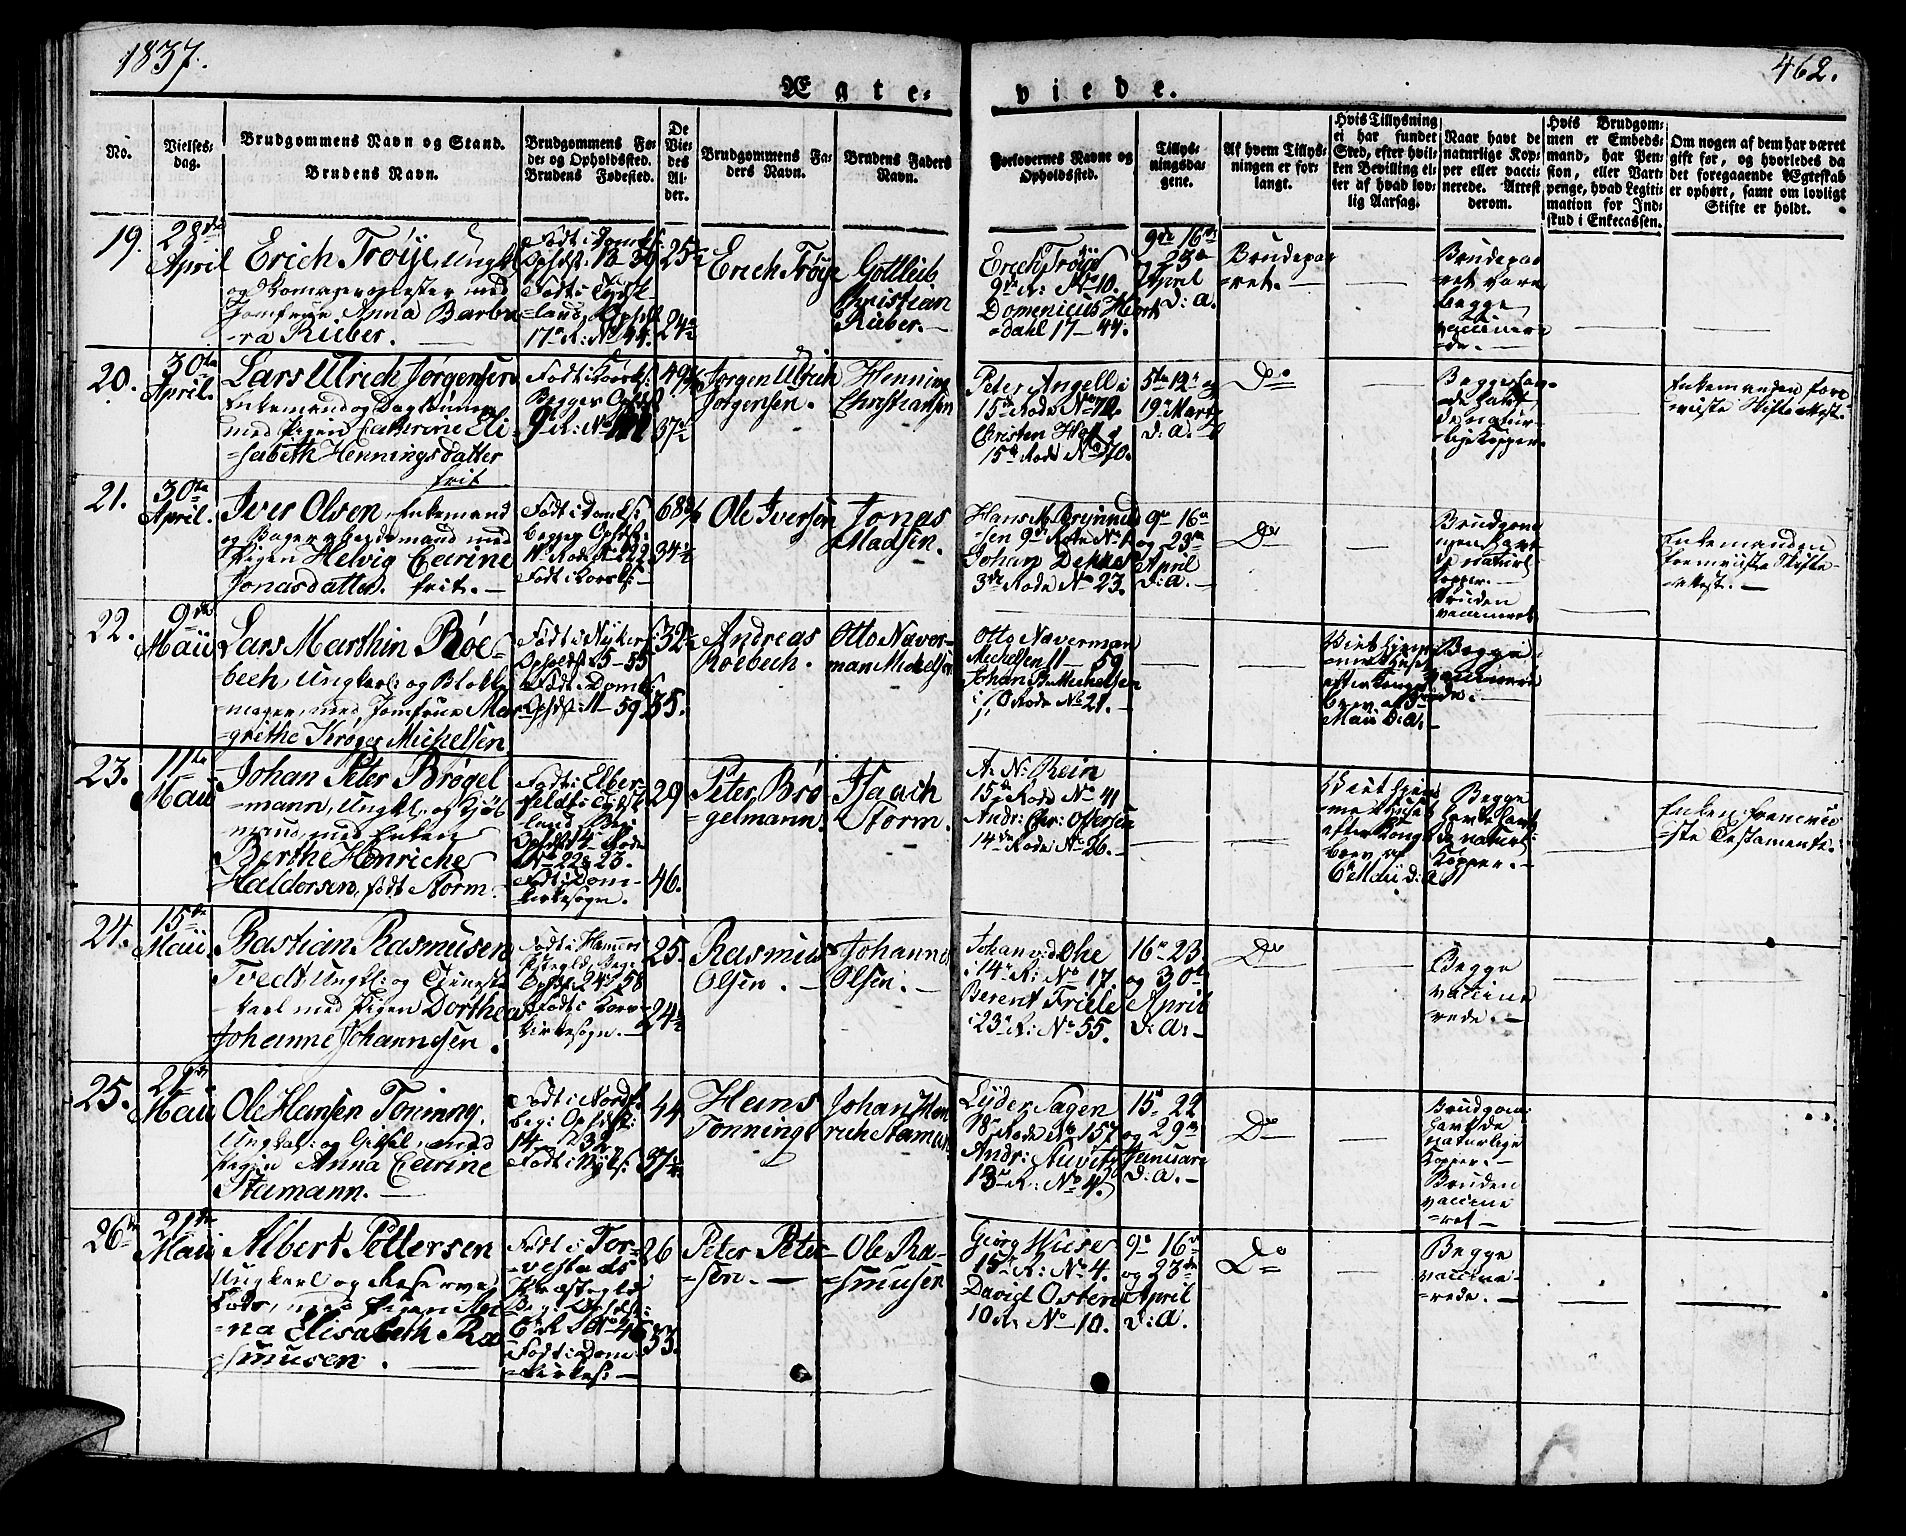 1837.
462.
Ægte=
viede.
No.
Vielses-
dag.
Brudgommens Navn og Stand.
Brudens Navn.
Brudgommens Fø-
de- og Opholdssted.
Brudens Fødested.
De
Vie-
des
Al-
der.
Brudgommens Fa-
ders Navn.
Brudens Faders
Navn.
Forlovernes Navne og
Opholdssted.
Tillys-
ningsda-
gene.
Af hvem Tillys-
ningen er for-
langt.
Hvis Tillysning
ei har fundet
Sted, efter hvil-
ken Bevilling el-
ler af hvad lov-
lig Aarsag.
Naar havt de
naturlige Kop-
per eller vacci-
nerede. Attest
derom.
Hvis Brudgom-
men er Embeds-
mand, har Pen-
sion, eller Vart-
penge, hvad Legiti-
mation for Ind-
skud i Enkecassen.
Om nogen af dem har været
gift før, og hvorledes da
det foregaaende Ægteskab
er ophørt, samt om lovligt
Skifte er holdt.
19.
28de
April
Erich Trøije, Ungkl
og med
Jomfrue Anna Barba
=ra Rieber.
Født i Domk:
Opholdst: 13-30
Født i Tydsk-
land, Opholdst
17de R: No 44.
25
24
Erich Trøije
Gottlieb
Christian
Rieber.
Erich Trøije
9de R: No 10.
Domenicus Hiort
=dahl 17-44.
9de 16de
og 23de
April
d: a.
Brudepar
ret.
Brudepar
ret vare
begge
vaccinere
=de.
20.
30te
April.
Lars Ulrich Jørgensen
Enkemand og Daglønner
med Pigen Catherine Eli
=sabeth Henningsdatter
frit
Født i Korsk:
Begges Opholdst
9de R: No
49
37
Jørgen Ulrich
Jørgensen.
Henning
Christiansen
Peter Angell i
15de Rode No 72.
Christen
15de Rode No 70.
5te 12te og
19de Marts
d: a.
Do
Begge hav-
de havt
de natur-
lige Kopper.
Enkemanden fore
=viiste Skifte Attest.
21.
30te
April.
Iver Olsen, Enkemand
og med
Pigen Helvig Carine
Jonasdatter. frit.
Født i Domk:
Begges Opholdst:
Rode No 222
Født i Korsk:
68
34½
Ole Iversen
Jonas
Madsen.
Hans M. Brynnild
=sen 9de Rode No
Johan Dekke
3die Rode No 23.
9de 16de
og 23de
April
d: a.
Do
Brudgom
men havt
de naturl:
Kopper.
Bruden
vaccineret
Enkemanden
fremviiste Skifte
=Attest.
22.
9de
Maii
Lars Marthin Røe-
bech, Ungkarl og Blokk
=mager, med Jomfrue Mar
=grethe Krøger Michelsen
Født i Nykk:
Opholdst: 5-55
Født i Domk:
Opholdst: 11-59
32½
35.
Andreas
Roebech.
Otto Naver-
man Michelsen
Otto Naverman
Michelsen 11-59
Johan B. Michelsen
i 10 Rode No 21.
Viet hjem-
me i Huset
efter Konge-
brev af 5
Maii d: a.
Begge
vaccinere
=de.
23.
11te
Maii
Johan Peter Brøgel
=mann, Ungkl. og Kjøb
=mand, med Enken
Berthe Henriche
Haldorsen, født Storm.
Født i Elber-
feldt i Tydsk-
land, Begges
Opholdst Rode
No 22 & 23.
Født i Dom-
kirkesogn.
29
46.
Peter Brø
=gelmann.
Isaach
Storm.
A. N: Rein
15de Rode No 41
Andr: Chr: Olsersen
14de Rode No 26.
Viet hjem
me i Huset
efter Konge
brev af
6te Maii d: A
Begge
havde havt
de naturl:
Kopper.
Enken fremvii
=ste Testamente.
24.
15de
Maii
Bastian Rasmusen
Tvedt Ungkl: og Tjeneste
=karl med Pigen Dorthea
Johanne Johannesen.
Født i Hammers
Begges
Opholdst 24-58
Født i Kors-
kirkesogn.
25.
24½
Rasmus
Olsen.
Johannes
Olsen.
Johan v: d: Ohe
14de R: No 17.
Berent Friele
i 23de R: No 55.
16de 23.
og 30te
April
d: a.
Do
Begge
vaccine
rede.
25.
Maii
Ole Hansen Tønning,
Ungkal: og med
Pigen Anna Carine
Stamann.
Født i Nordf:
Beg: Opholdst:
14. No 32.
Født i Nykk:
44
37½
Hans
Tønning
Johan Hen
rich Stamann
Lyder Sagen
18de Rode No 157
Andr:
13de R: No 4.
15de 22
og 29de
Januari
d: a.
Do
Brudgom:
havt de
naturlige
Kopper.
Bruden
vaccine
=ret
26de
21de
Maii
Albert Pettersen
Ungkarl og Reserve
med Pigen
=na Elisabeth Ra
=smusen.
Født i Tor-
=vestads
Præstegld
Beg: Opholdst:
6te R No 46
Født i Dom-
=kirkes:
26
33.
Peter Peter-
=sen.
Ole Ra-
=smusen
Georg Wiese
15de R: No 4.
David Osten
10de No 10.
9de 16de
og 23de
April
d: a.
Do
Begge
vaccine-
=rede.